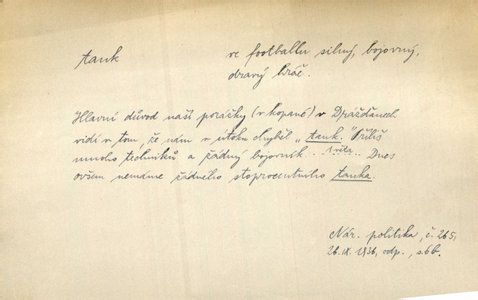 tank
ve footballu silný, bojovný,
dravý hráč.
Hlavní důvod naší porážky (v kopané) v Drážďanech
vidí v tom, že nám v útoku chyběl „tank“. Příliš
mnoho techniků a žádný bojovník. - Dnes
ovšem nemáme žádného stoprocentního tanka.
Nár. politika, č. 265,
26.IX.1936, odp., s.6b.